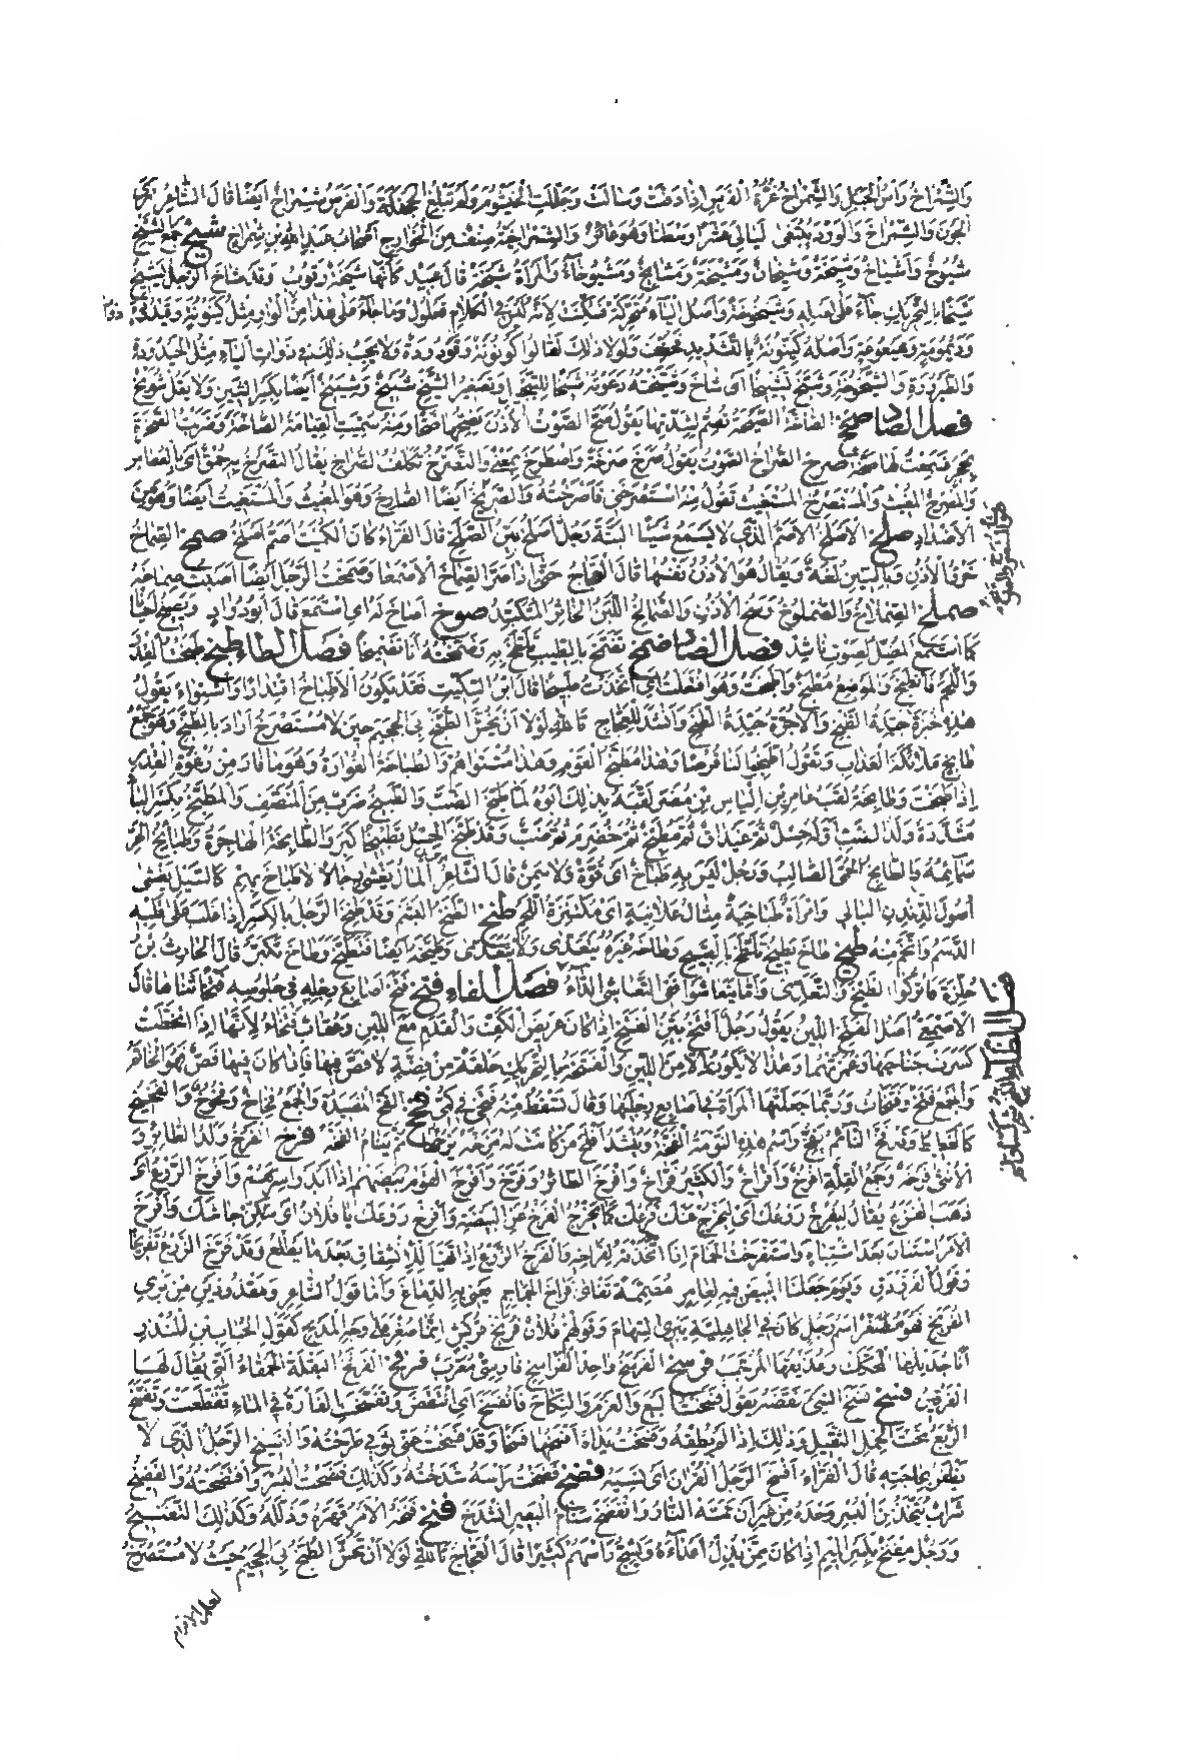 والشمراخ رأس الجبل والشمراخ غرة الفرس إذا دقت وسالت وجللت الخيشوم ولم تبلغ الجحفلة والفرس شمراخ أيضا قال الشاعر ترى
الجون والشمراخ والورد يبتغى ليالى عشرا وسطنا وهو عائر والشمراخية صنف من الخوارج أصحاب عبد الله بن شمراخ شيخ جمع الشيخ
شيوخ وأشياخ وشيخة وشيخان ومشيخة ومشايخ ومشيوخاء والمرأة شيخة قال عبيد كأنها شيخة رقوب وقد شاخ الرجل يشيخ
شيخا بالتحريك جاء على أصله وشيخوخة وأصل الياء متحركة فسكنت لأنه ليس في الكلام فعلول وما جاء على هذا من الواو مثل كينونة وقيدودة
وديمومة وهيعوعة وأصله كينونة بالتشديد فخفف ولولا ذلك لقالوا كونونة وقودودة ولا يجب ذلك في ذوات الياء مثل الحيدودة
والطيرورة والشيخوخة وشيخ تشييخا أي شاخ وشيخته دعوته شيخا للتبجيل وتصغير الشيخ شييخ وشييخ أيضا بكسر الشين ولا تقل شويخ
فصل الصاد صخخ الصاخة الصيحة تصم لشدتها يقول صخ الصوت الأذن يصخها صخا ومنه سميت القيامة الصاخة وضربت الصخرة
بحجر فسمعت لها صخة صرخ الصراخ الصوت يقول صرخ صرخة واصطرخ بمعنى والتصرخ تكلف الصراخ يقال التصرخ به حمق أي بالعطاس
والمصرخ المغيث والمستصرخ المستغيث تقول منه استصرخني فأصرخته والصريخ أيضا الصارخ وهو المغيث والمستغيث أيضا وهو من
الأضداد صلخ الأصلخ الأصم الذي لا يسمع شيئا البتة رجل أصلخ بين الصلخ قال الفراء كان الكميت أصم أصلخ صمخ الصماخ
خرق الأذن وبالسين لغة ويقال هو الأذن نفسها قال العجاج حتى إذا صر الصماخ الأصمعا وصمخت الرجل أيضا أصبت صماخه
صملخ الصملاخ والصملوخ وسخ الأذن والصمالخ اللبن الخاثر المتكبد صوخ أصاخ له أي استمع قال أبو دواد ويصيخ أحيانا
كما استمع المضل لصوت ناشد فصل الضاد ضمخ تضمخ بالطيب تلطخ به وضمخته أنا تضميخا فصل الطاء طبخ طبخت القدر
واللحم فانطبخ والموضع مطبخ واطبخت وهو افتعلت أي اتخذت طبيخا قال ابن السكيت وقد يكون الاطباخ اقتدارا واشتواء يقول
هذه خبزة جيدة الطبخ والآجرة جيدة الطبخ وأنشد للعجاج تالله لولا أن تحش الطبخ بي الجحيم حين لا مستصرخ أراد بالطبخ وهو جمع
طابخ ملائكة العذاب وتقول اطبخوا لنا قرصا وهذا مطبخ القوم وهذا مشتواهم والطباخة الفوارة وهو ما فار من رغوة القدر
إذا طبخت وطابخة لقب عامر بن الياس بن مضر لقبه بذلك أبوه لما طبخ الضب والطبيخ ضرب من المنصف والمطبخ بكسر الباء
مشددة ولد الضب أوله حسل ثم غيداق ثم مطبخ ثم خضرم ثم ضب وقد طبخ الحسل تطبيخا كبر والطابخة الهاجرة وطبائخ الحر
سمائمه والطابخ الحمى الصالب ورجل ليس به طباخ أي قوة ولا سمن قال الشاعر المال يغشى رجالا لا طباخ بهم كالسيل يغشى
أصول الدندن البالى وامرأة طباخية مثال علانية أي مكتنزة اللحم طنخ الطنخ البشم وقد طنخ الرجل بالكسر إذا غلب على قلبه
الدسم واتخم منه طيخ طاخ يطيخ تلطخ بالقبيح وطاخه غيره يتعدى ولا يتعدى وطيخه أيضا فتطيخ وطاخ تكبر قال الحارث بن
حلزة فاتركوا الطيخ والتعدى وإما تتعاشوا ففي التعاشى الداء فصل الفاء فتخ فتخ أصابع رجله في جلوسه فتخا ثناها قال
الأصمعي أصل الفتخ اللين يقول رجل أفتخ بين الفتخ إذا كان عريض الكف والقدم مع اللين وعقاب فتخاء لأنها إذا انحطت
كسرت جناحيها وغمزتهما وهذا لا يكون إلا من اللين والفتخة بالتحريك حلقة من فضة لا فص فيها فإذا كان فيها فص فهو الخاتم
والجمع فتخ وفتخات وربما جعلتها المرأة في أصابع رجلها وقال تسقط منه فتخي في كمي فخخ الفخ المصيدة والجمع فخاخ وفخوخ والفخيخ
كالغطيط وقد فخ النائم يفخ واسم هذه النومة الفخة وينشد أفلح من كانت له مزخه يزخها ثم ينام الفخه فرخ الفرخ ولد الطائر و
الأنثى فرخة وجمع القلة أفرخ وأفراخ والكثير فراخ وأفرخ الطائر وفرخ وأفرخ القوم بيضهم إذا أبدوا سرهم وأفرخ الروع أي
ذهب الفزع يقال ليفرخ روعك أي ليخرج عنك فزعك كما يخرج الفرخ عن البيضة وأفرخ روعك يا فلان أي سكن جأشك وأفرخ
الأمر استبان بعد اشتباه واستفرخت الحمام إذا اتخذتها لفراخه والفرخ الزرع إذا تهيأ للانشقاق بعد ما يطلع وقد فرخ الزرع تفريخا
وقول الفرزدق ويوم جعلنا البيض فيه لعامر مصممة تفأى فراخ الجماجم يعني به الدماغ وأما قول الشاعر ومقذوذين من برى
الفريخ فهو مصغر اسم رجل كان في الجاهلية يبرى السهام وقولهم فلان فريخ قريش إنما صغر على وجه المدح كقول الحباب بن المنذر
أنا جذيلها المحكك وعذيقها المرجب فرسخ الفرسخ واحد الفراسخ فارسي معرب فرفخ الفرفخ البقلة الحمقاء التي يقال لها
الفرفين فسخ فسخ الشيء نقضه يقول فسخت البيع والعزم والنكاح فانفسخ أي انتقض وتفسخت الفارة في الماء تقطعت وتفسخ
الربع تحت الحمل الثقيل وذلك إذا لم يطقه وفسخت يداه أفسخها فسخا وقد فسخت عنى ثوبي طرحته والفسيخ الرجل الذي لا
يظفر بحاجته قال الفراء أفسخ الرجل القرآن أي نسيه فضخ فضخت رأسه شدخته وكذلك فضخت البسر وافتضخته والفضيخ
شراب يتخذ من البسر وحده من غير أن تمسه النار وانفضخ سنام البعير انشدخ فنخ فنخه الأمر قهره وذلله وكذلك التفنيخ
ورجل مفنخ بكسر الميم إذا كان ممن يذل أعداءه ويشج رأسهم كثيرا قال العجاج تالله لولا أن تحش الطبخ بي الجحيم حيث لا مستصرخ
لعلم الأقوام
فصل الظاء